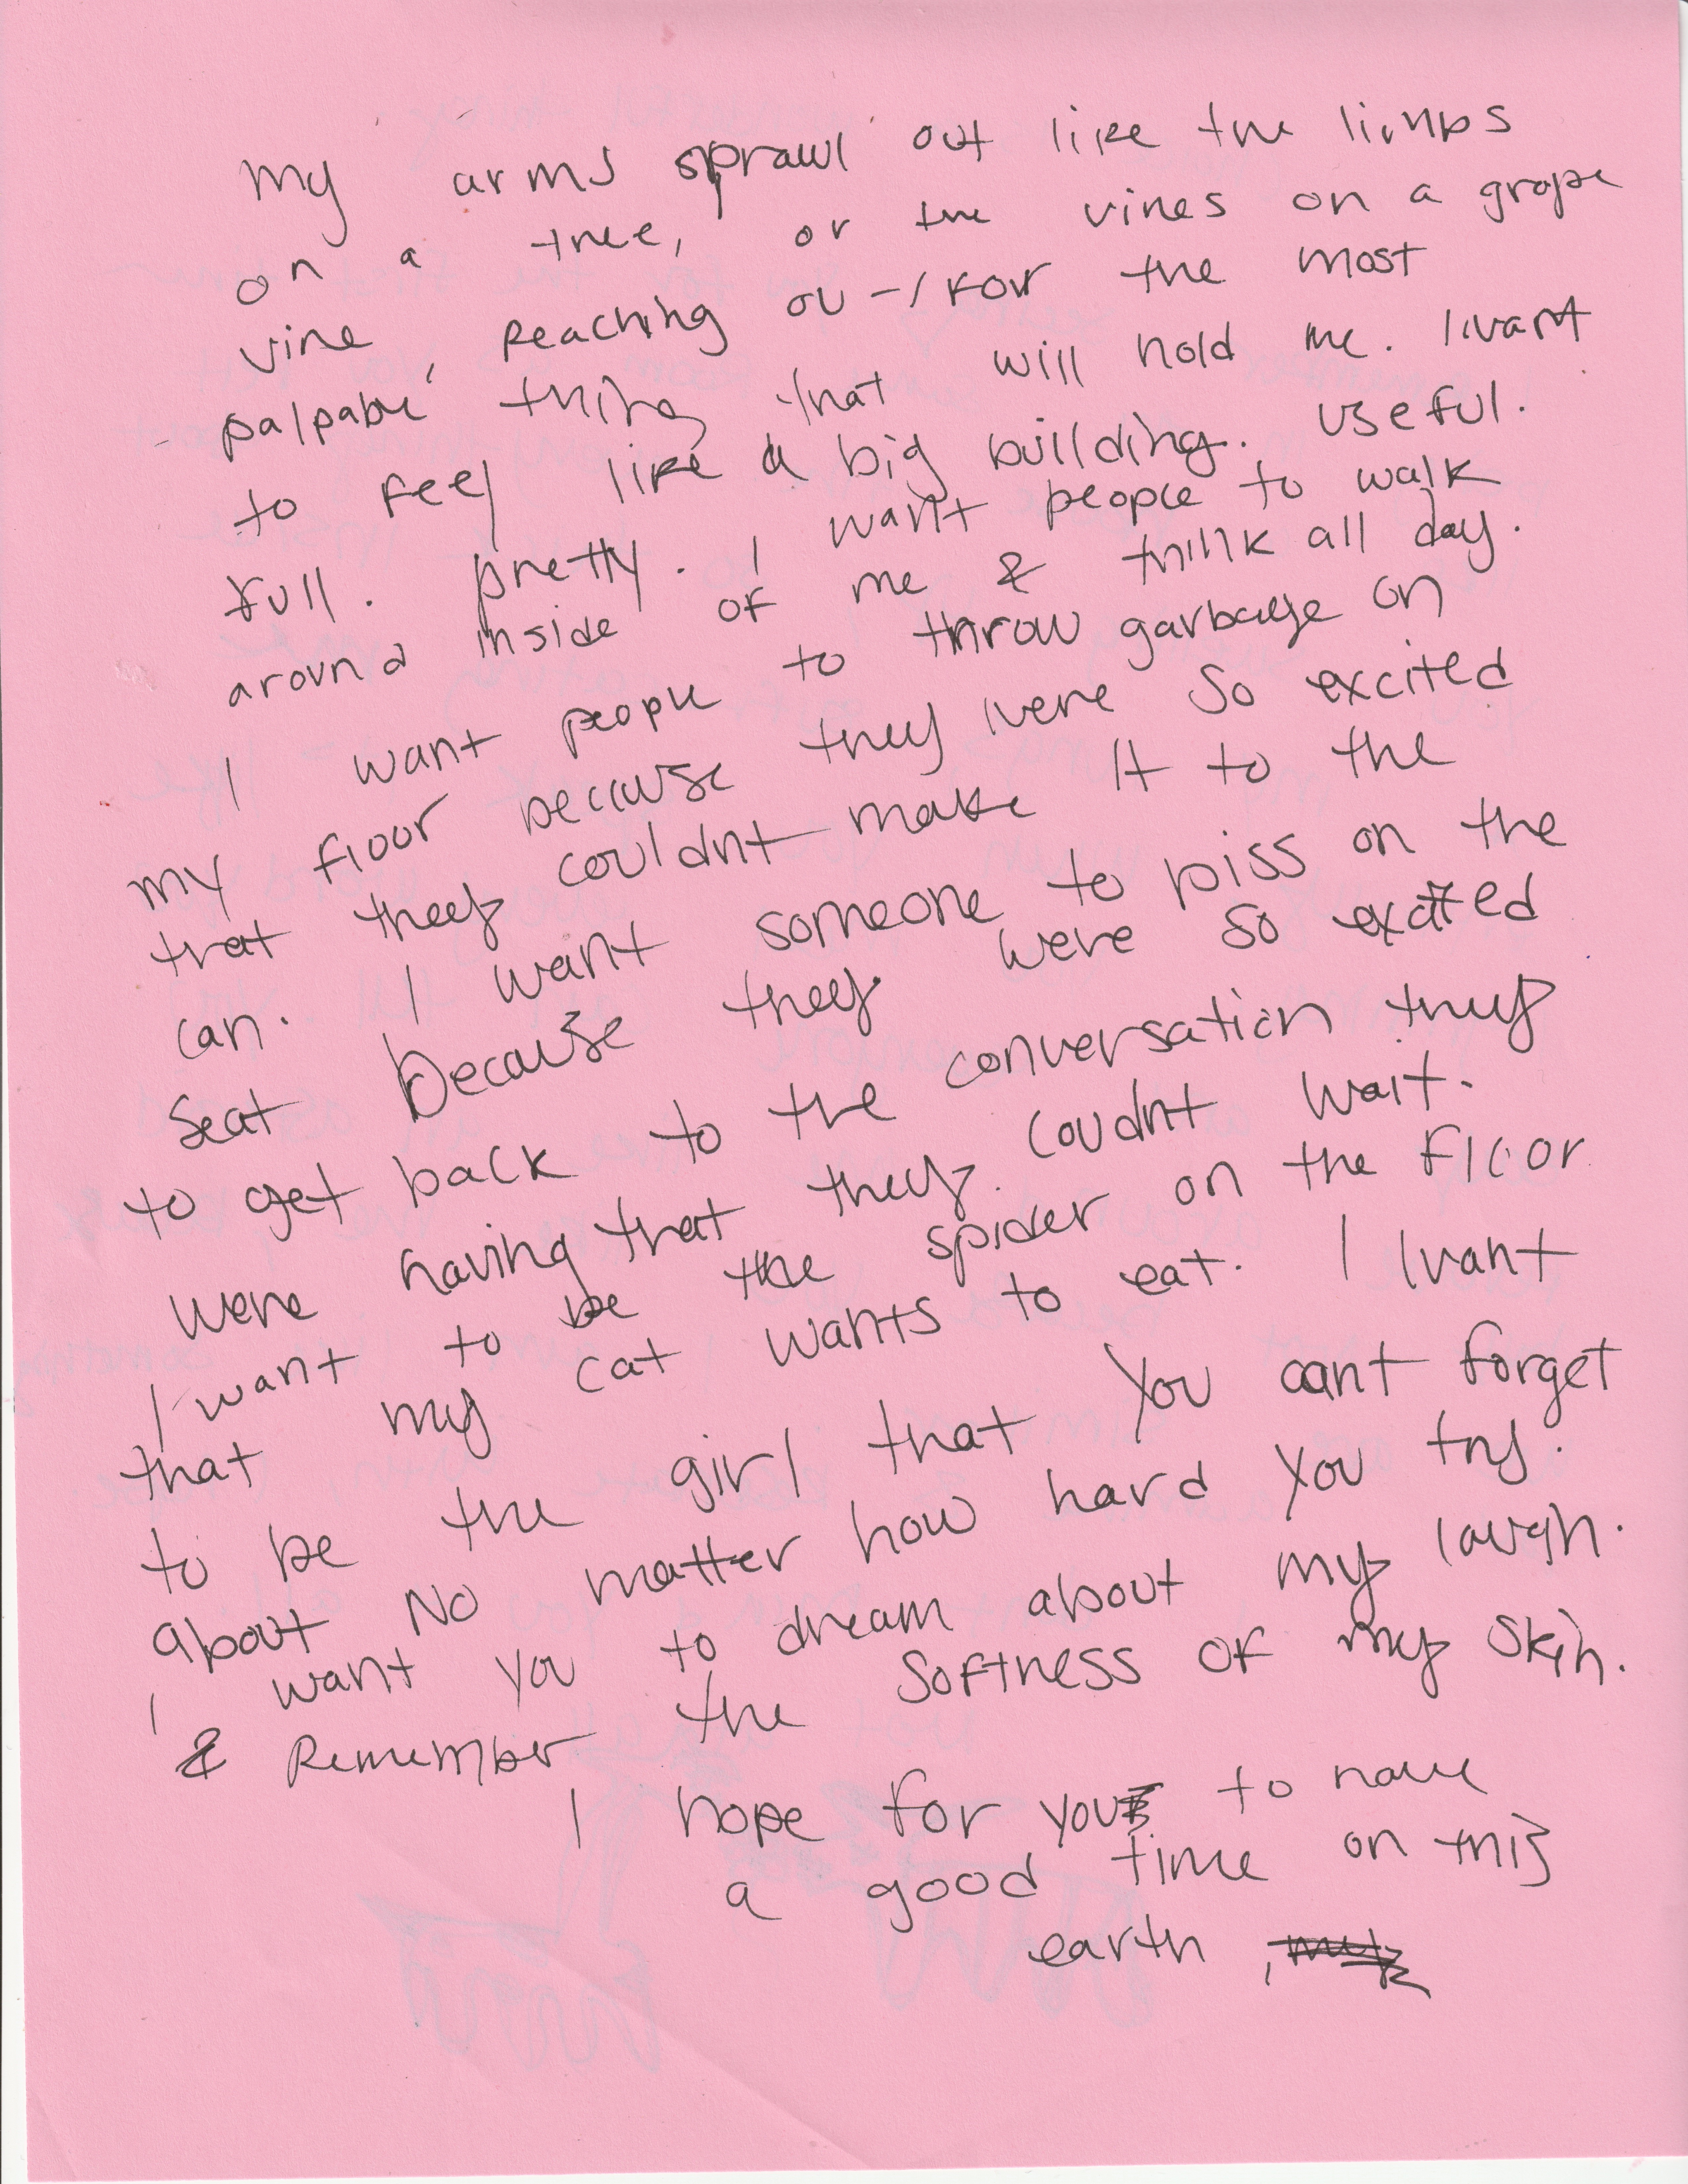 My arms sprawl out like the limbs
on a tree, or the vines on a grape
vine, Reaching out for the most
palpable thing that will hold me. I want
to feel like a big building. useful.
full. pretty. I want people to walk
around inside of me & think all day.
I want people to throw garbage on
my floor because they were so excited
that they couldnt make it to the
can. I want someone to piss on the
seat because they were so excited
to get back to the conversation they
were having that they coudnt wait.
I want to be the spider on the floor
that my cat wants to eat. I want
to be the girl that you cant forget
about No matter how hard you try.
I want you to dream about my laugh.
& Remember the softness of my skin.
I hope for you to have
a good time on this
earth,